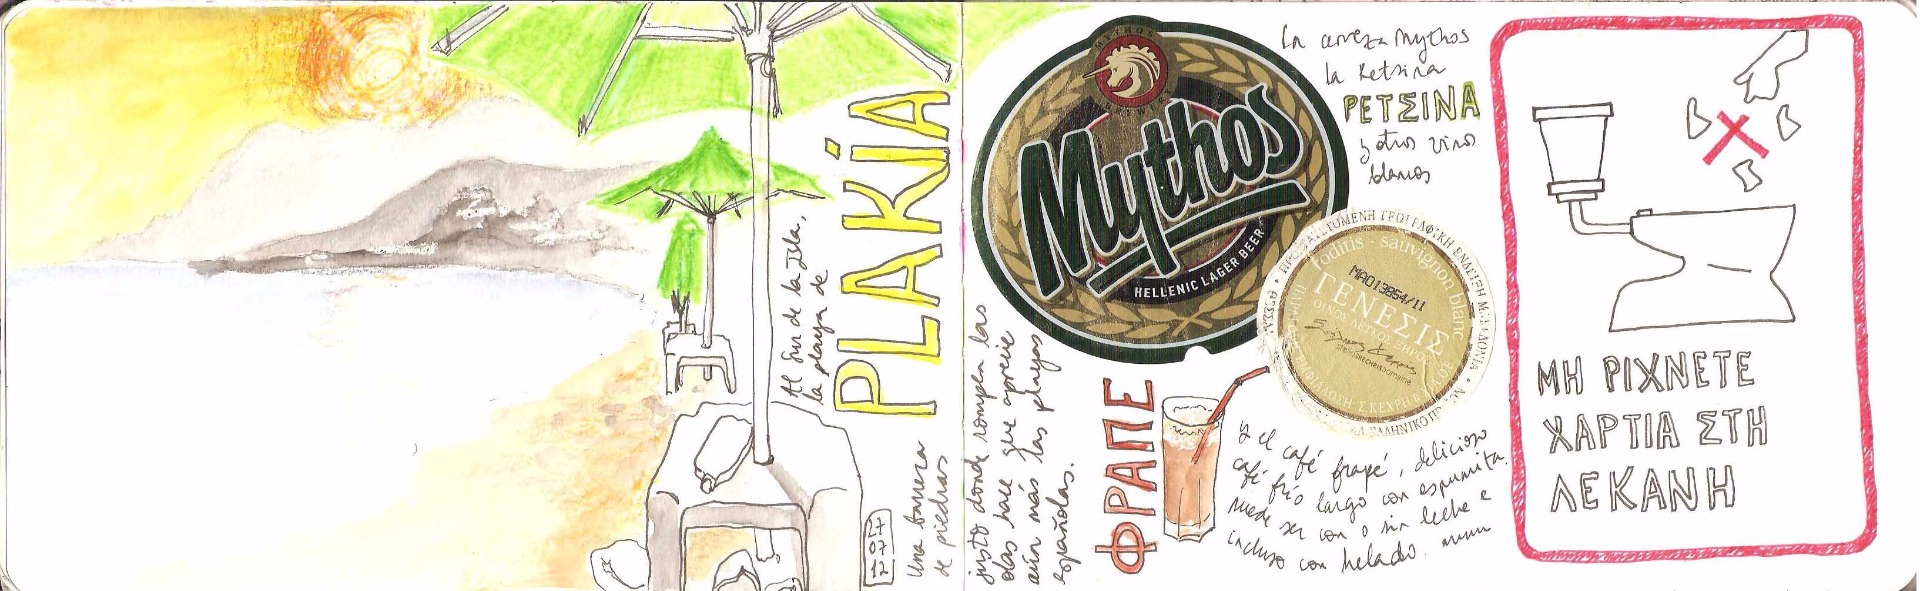 Al Sur de la Isla,
la playa de
PLAKÍA
27
07
12
Una barrera
de piedras
justo donde rompen las
olas hace que aprecie
aún más las playas
españolas.
MYTHOS
BREWERY
Mythos
HELLENIC LAGER BEER
La cerveza Mythos
la Retsina
ΡΕΤΣΙΝΑ
y otros vinos
blancos
roditis - sauvignon blanc
MA013854/11
ΓΕΝΕΣΙΣ
ΟΙΝΟΣ ΛΕΥΚΟΣ ΞΗΡΟΣ
ΦΡΑΠΕ
y el café frapé, delicioso
café frío largo con espumita.
Puede ser con o sin leche e
incluso con helado. mmm
ΜΗ ΡΙΧΝΕΤΕ
ΧΑΡΤΙΑ ΣΤΗ
ΛΕΚΑΝΗ